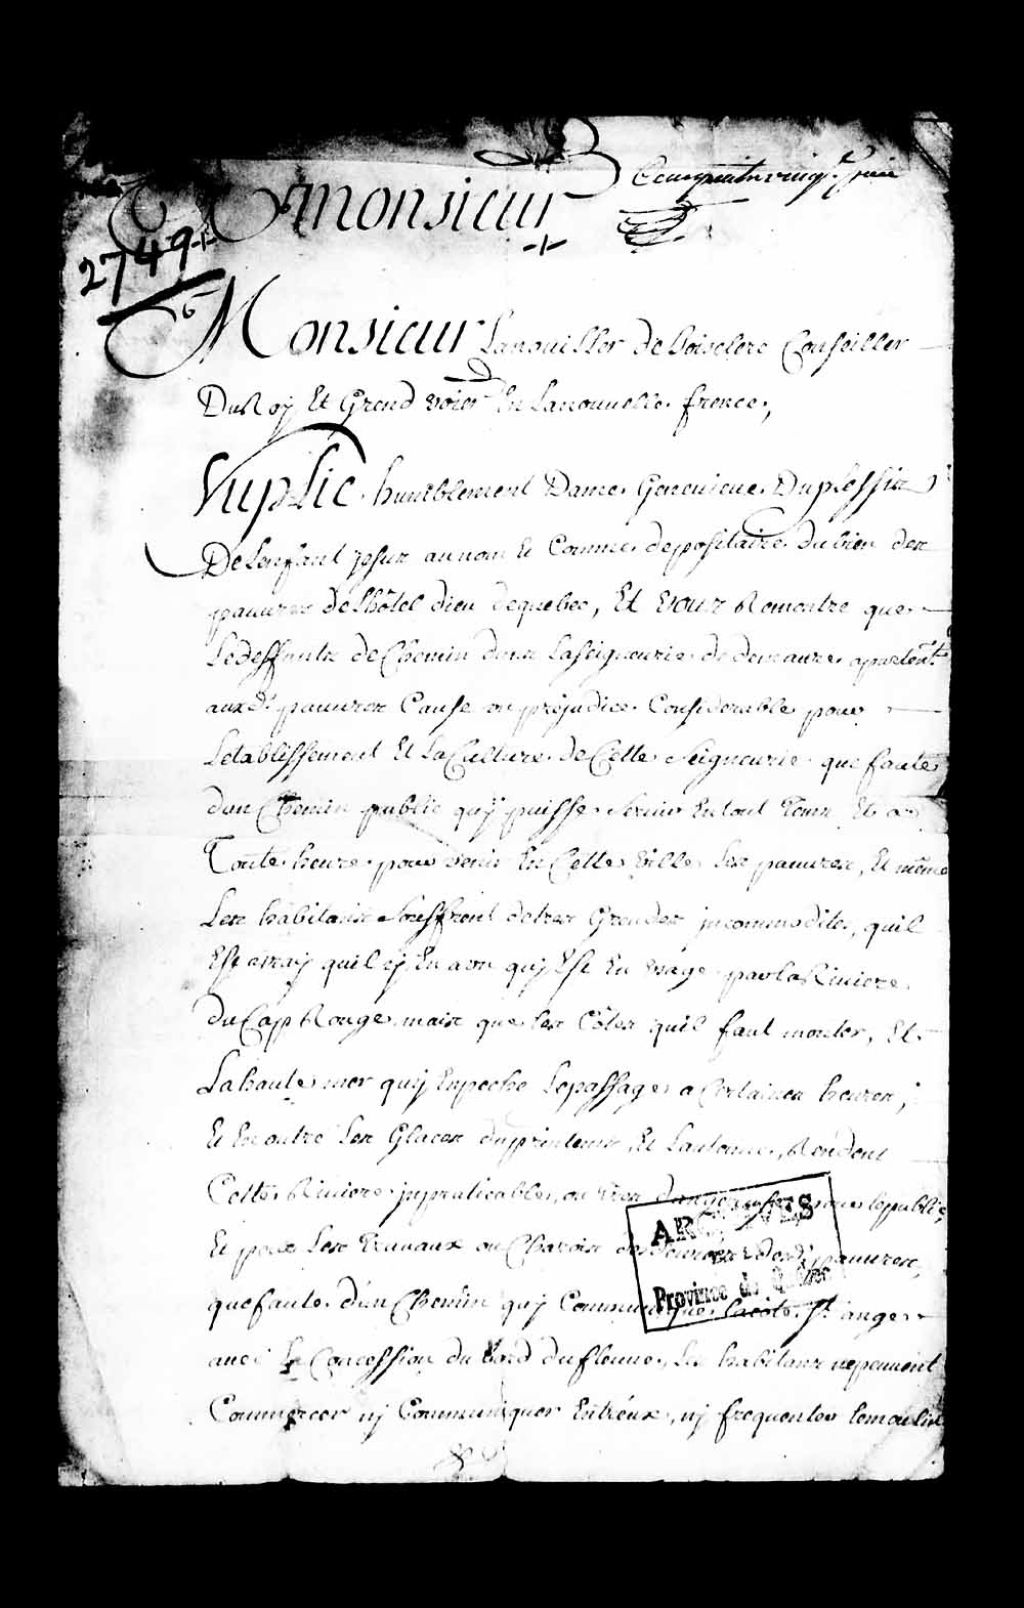 A monsieur
2749
6
Monsieur Lanouiller de boisclerc Conseiller
Du Roy Et Grand voier En Lanouuelle france,
Suplie humblement Dame Geneuieue Duplessix
De Lenfant jesus au nom Et Comme depositaire du bien des
pauures de Lhôtel dieu dequebec, Et vous Remontre que
Le deffaulte de Chemin dans La Seigneurie de demaure apartent.
auxd. pauures Cause un préjudice Considerable pour
Letablissement Et La Culture de Cette Seigneurie que faute
dun Chemin public quy puisse Seruir En tout Tems Et a
Toute heure pour venir En Cette ville Les pauures, Et même
Les habitans Souffrent de tres Grandes jncommodites, quil
Est vray quil y En a un quy Est En usage par la Riuiere
du Cap Rouge mais que Les Côtes quil faut monter, Et
La haute mer quy Enpeche Lepassage a Certaines heures,
Et En outre Les Glaces du printems, Et Lautonne, Rendent
Cette Riuiere jnpraticable, ou tres dangereuse pour le public,
Et pour Les Trauaux ou Charois desd. pauures,
que faute dún Chemin quy Communique La côte St. ange
auec La Concession du bord du fleuue, Les habitans nepeuuent
Commercer ny Communiquer Entréux, ny frequenter le moulin
ARCHIVES
DE LA
Province de Québec